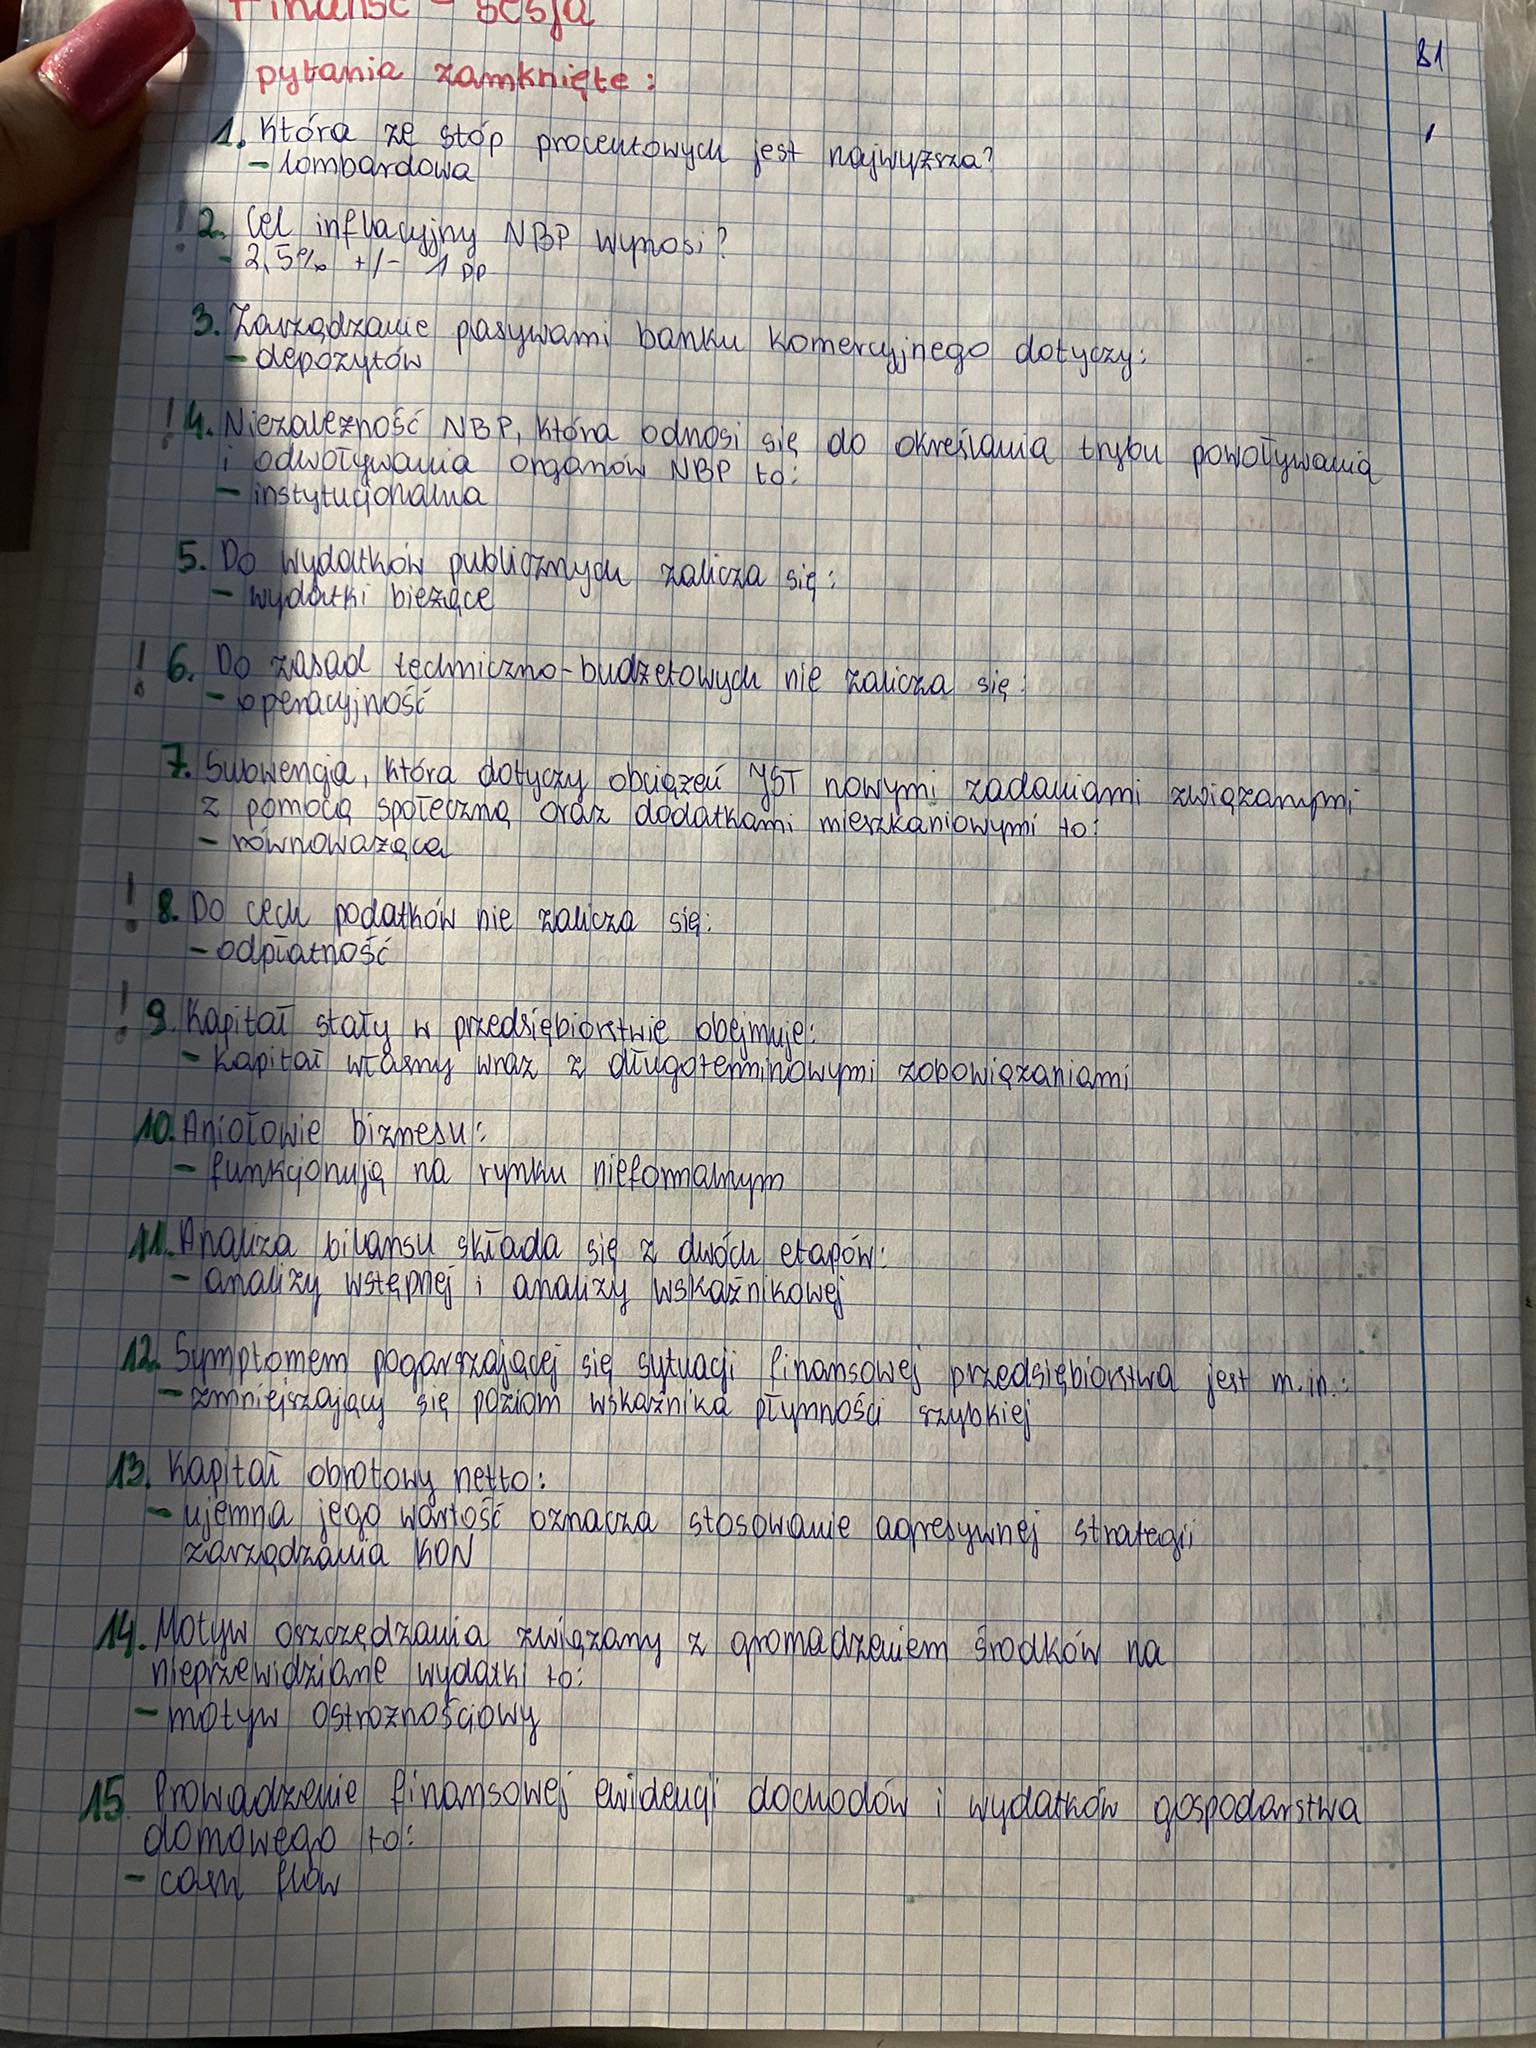 Finanse - sesja
81
pytania zamknięte:
1. Która ze stóp procentowych jest najwyższa?
- lombardowa
! 2. Cel inflacyjny NBP wynosi?
- 2,5% +/- 1 pp
3. Zarządzanie pasywami banku komercyjnego dotyczy:
- depozytów
! 4. Niezależność NBP, która odnosi się do określania trybu powoływania
i odwoływania organów NBP to:
- instytucjonalna
5. Do wydatków publicznych zalicza się:
- wydatki bieżące
! 6. Do zasad techniczno-budżetowych nie zalicza się:
- operacyjność
7. Subwencja, która dotyczy obciążeń JST nowymi zadaniami związanymi
z pomocą społeczną oraz dodatkami mieszkaniowymi to:
- równoważąca
! 8. Do cech podatków nie zalicza się:
- odpłatność
! 9. Kapitał stały w przedsiębiorstwie obejmuje:
- kapitał własny wraz z długoterminowymi zobowiązaniami
10. Aniołowie biznesu:
- funkcjonują na rynku nieformalnym
11. Analiza bilansu składa się z dwóch etapów:
- analizy wstępnej i analizy wskaźnikowej
12. Symptomem pogarszającej się sytuacji finansowej przedsiębiorstwa jest m.in.:
- zmniejszający się poziom wskaźnika płynności szybkiej
13. Kapitał obrotowy netto:
- ujemna jego wartość oznacza stosowanie agresywnej strategii
zarządzania KON
14. Motyw oszczędzania związany z gromadzeniem środków na
nieprzewidziane wydatki to:
- motyw ostrożnościowy
15. Prowadzenie finansowej ewidencji dochodów i wydatków gospodarstwa
domowego to:
- cash flow